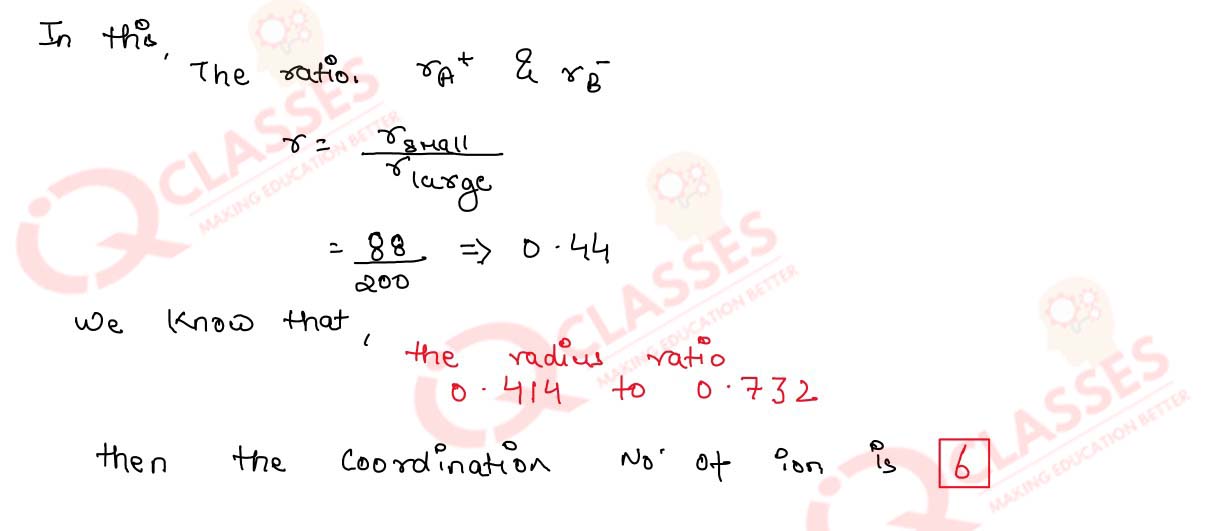 In this,
The ratio. r_A⁺ & r_B⁻
r = r_small / r_large
= 88 / 200 => 0.44
We know that,
the radius ratio
0.414 to 0.732
then the coordination No. of ion is 6
CLASSES
MAKING EDUCATION BETTER
CLASSES
MAKING EDUCATION BETTER
CLASSES
MAKING EDUCATION BETTER